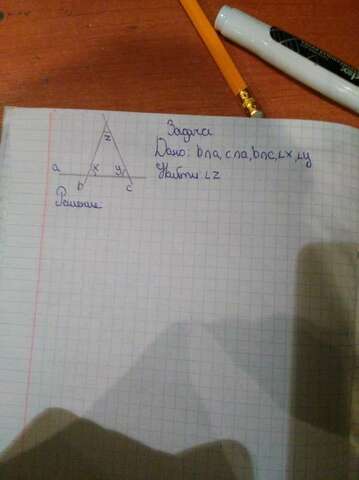 Задача
Дано: b∩a, c∩a, b∩c, ∠x, ∠y
Найти ∠z
z
a x y
b c
Решение